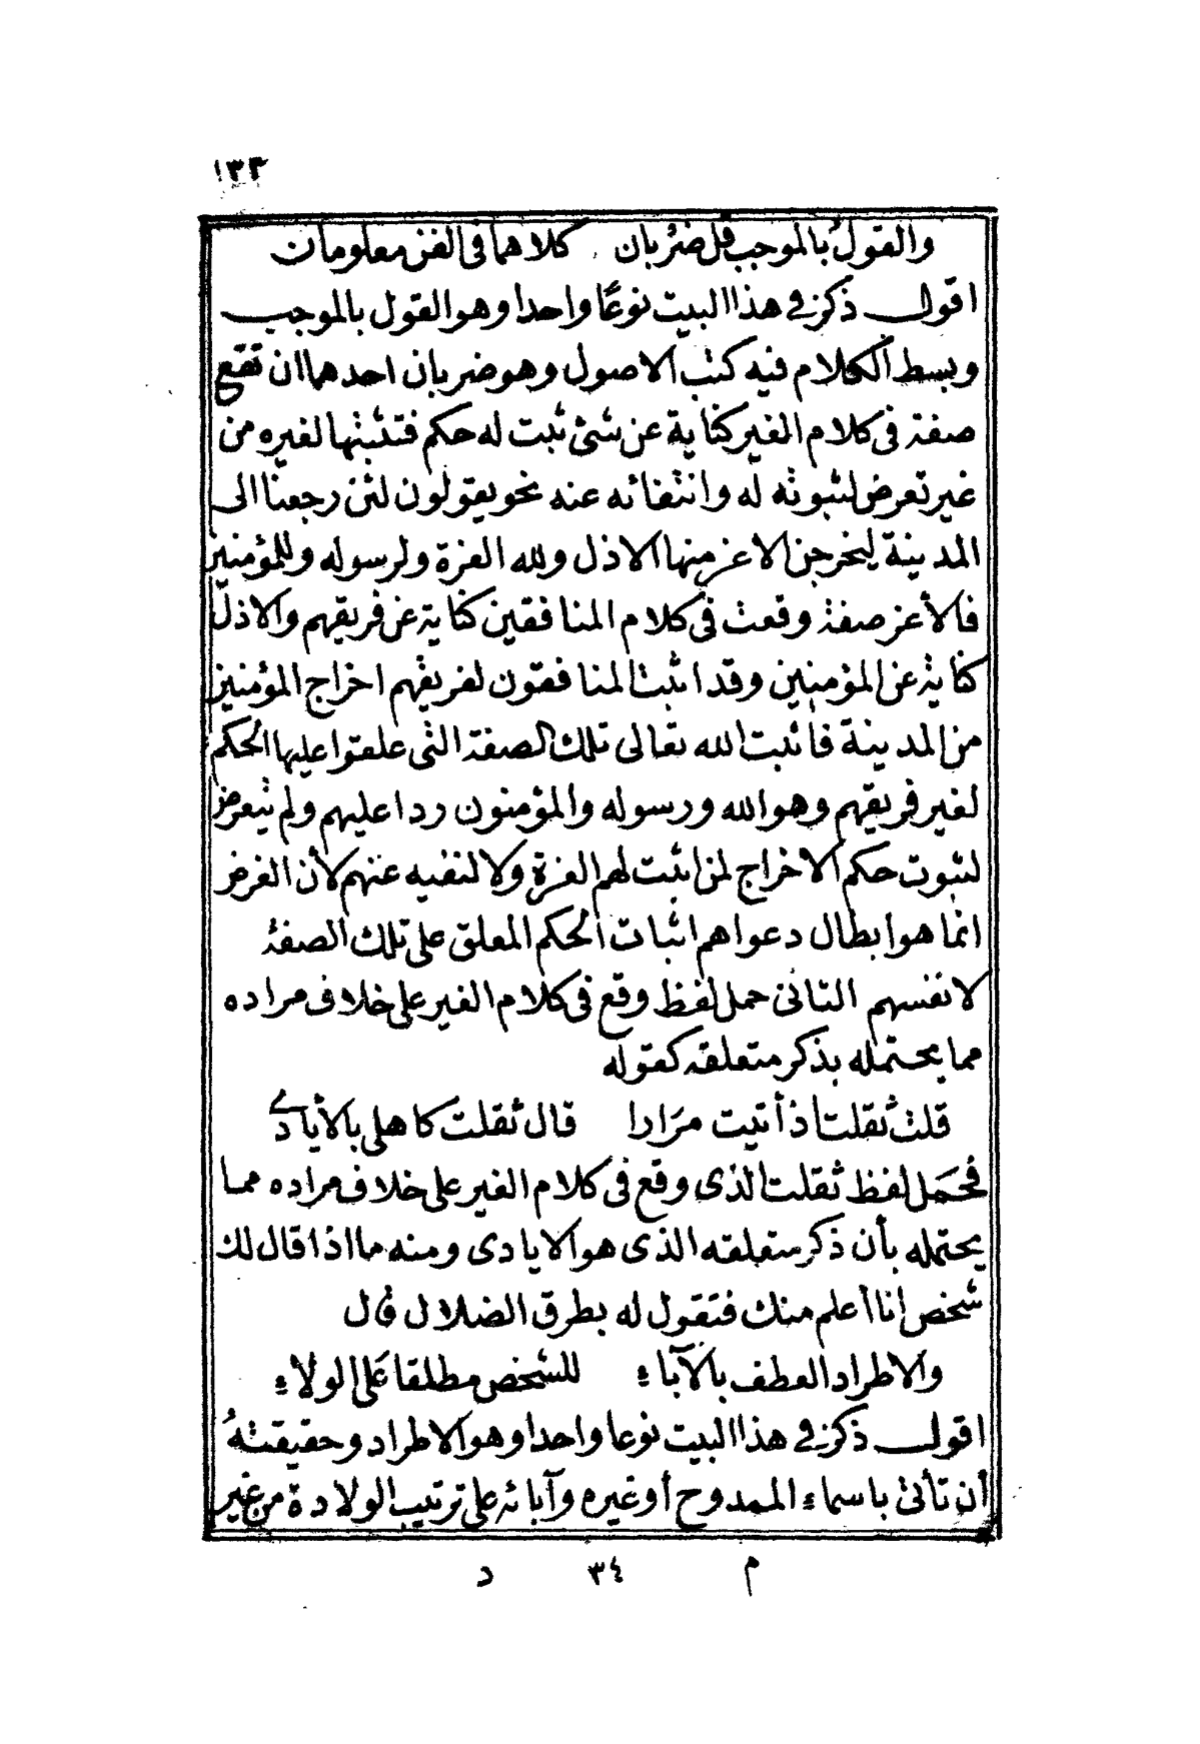 ١٣٣
والقول بالموجب قل ضربان كلاهما فى الفن معلومان
اقول ذكر فى هذا البيت نوعًا واحدا وهو القول بالموجب
وبسط الكلام فيه كتب الاصول وهو ضربان احدهما ان تقع
صفة فى كلام الغير كناية عن شئ ثبت له حكم فتثبتها لغيره من
غير تعرض لثبوته له وانتفائه عنه نحو يقولون لئن رجعنا الى
المدينة ليخرجن الاعز منها الاذل ولله العزة ولرسوله وللمؤمنين
فالأعز صفة وقعت فى كلام المنافقين كناية عن فريقهم والاذل
كناية عن المؤمنين وقد اثبت المنافقون لفريقهم اخراج المؤمنين
من المدينة فأثبت الله تعالى تلك الصفة التى علقوا عليها الحكم
لغير فريقهم وهو الله ورسوله والمؤمنون ردا عليهم ولم يتعرض
لثبوت حكم الاخراج لمن اثبت لهم العزة ولا لنفيه عنهم لأن الغرض
انما هو ابطال دعواهم اثبات الحكم المعلق على تلك الصفة
لانفسهم الثانى حمل لفظ وقع فى كلام الغير على خلاف مراده
مما يحتمله بذكر متعلقه كقوله
قلت ثقلت اذ أتيت مرَارا قال ثقلت كاهلى بالأيادى
فحَمَل لفظ ثقلت الذى وقع فى كلام الغير على خلاف مراده مما
يحتمله بأن ذكر متعلقه الذى هو الايادى ومنه ما اذا قال لك
شخص انا أعلم منك فتقول له بطرق الضلال قال
والاطراد العطف بالآباء للشخص مطلقا عَلى الولاء
اقول ذكر فى هذا البيت نوعا واحدا وهو الاطراد وحقيقتهُ
أن تأتى باسماء الممدوح أو غيره وآبائه على ترتيب الولادة من غير
م ٣٤ د